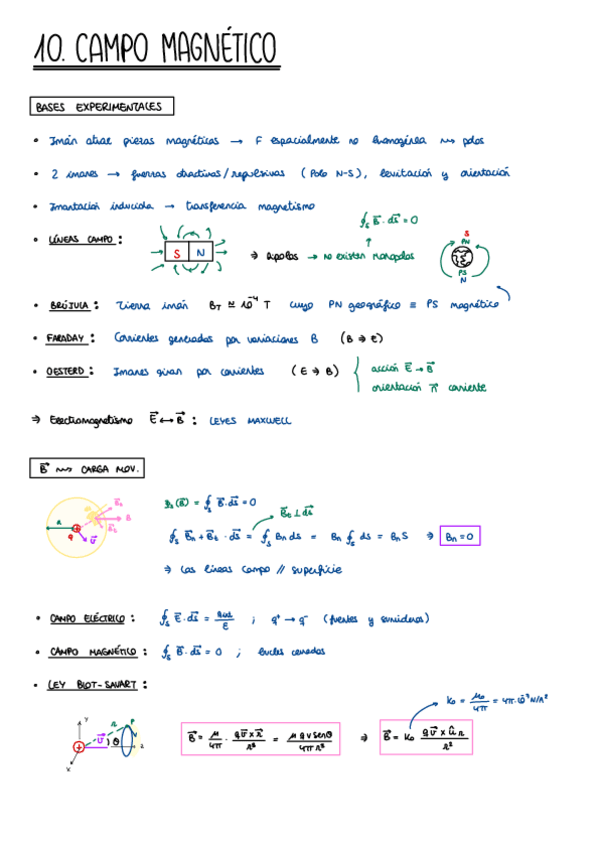 10. CAMPO MAGNÉTICO
BASES EXPERIMENTALES
• Imán atrae piezas magnéticas → F espacialmente no homogénea ⇝ polos
• 2 imanes → fuerzas atractivas/repulsivas (Polo N-S), levitación y orientación
• Imantación inducida → transferencia magnetismo
∮s B⃗·ds⃗ = 0
• LÍNEAS CAMPO:
S N
⇒ Dipolos → no existen monopolos
S
PN
PS
N
• BRÚJULA: Tierra imán B_T ≃ 10⁻⁴ T cuyo PN geográfico ≡ PS magnético
• FARADAY: Corrientes generadas por variaciones B (B → E)
• OESTERD: Imanes giran por corrientes (E → B)
acción E⃗ → B⃗
orientación corriente
⇒ Electromagnetismo E⃗ ↔ B⃗ : LEYES MAXWELL
B⃗ ⇝ CARGA MOV.
r q v⃗ B⃗n B B⃗t
(B⃗) = ∮s B⃗·ds⃗ = 0
B⃗t ⊥ ds⃗
∮s B⃗n + B⃗t · ds⃗ = ∮s Bn ds = Bn ∮s ds = Bn S ⇒ Bn = 0
⇒ Las líneas campo // superficie
• CAMPO ELÉCTRICO: ∮s E⃗·ds⃗ = / ε ; q⁺ → q⁻ (fuentes y sumideros)
• CAMPO MAGNÉTICO: ∮s B⃗·ds⃗ = 0 ; bucles cerrados
• LEY BIOT-SAVART:
K₀ = μ₀/4π = 4π·10⁻⁷ N/A²
y r P v⃗ θ z x
B⃗ = μ/4π · qv⃗ x r⃗/r³ = μ q v senθ/4π r² ⇒ B⃗ = K₀ qv⃗ x ûr/r²